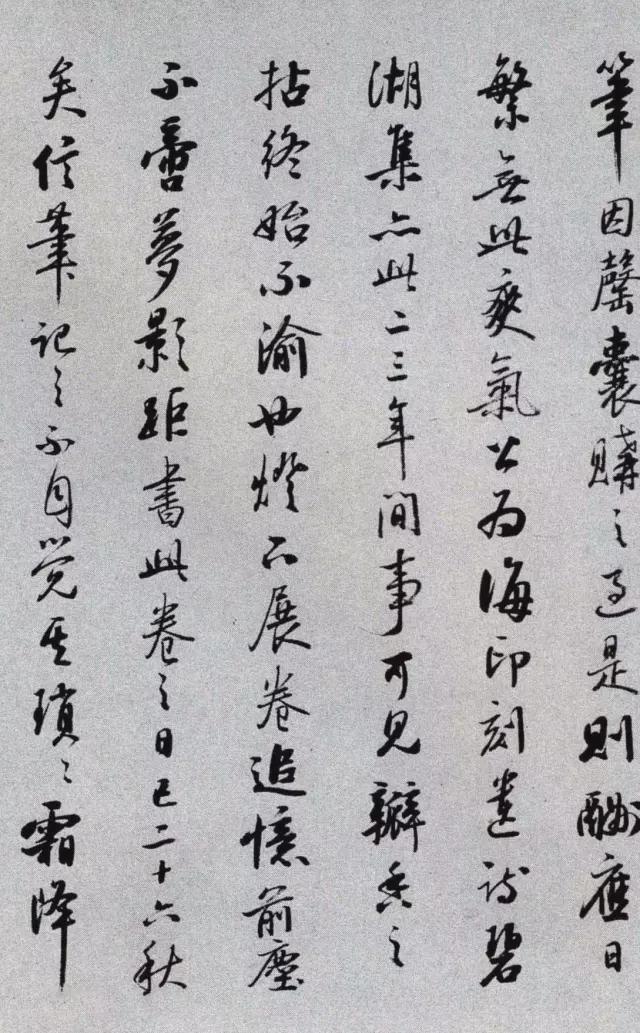 筆因罄囊購之過是則酬應日
繁無此爽氣公為海印刻遺詩碧
湖集亦此二三年間事可見瓣香之
拈終始不渝也燈下展卷追憶前塵
不啻夢影距書此卷之日已二十六秋
矣信筆記之不自覺其瑣瑣霜降